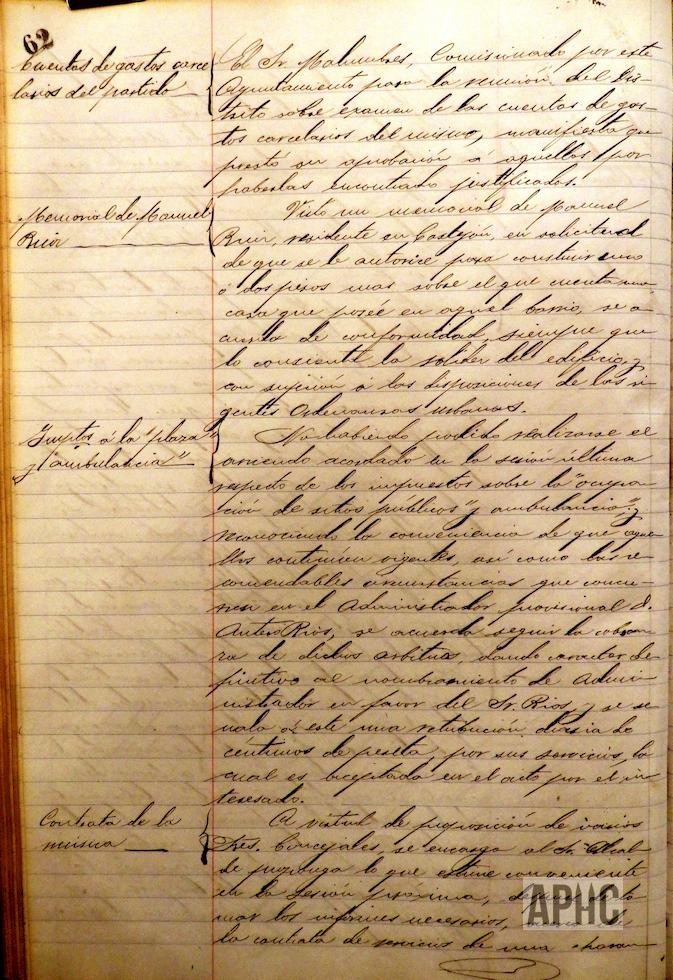 62
Cuentas de gastos carce
larios del partido
El Sr. Malumbres, Comisionado por este
Ayuntamiento para la reunión del Dis-
trito sobre examen de las cuentas de gas-
tos carcelarios del mismo, manifiesta que
prestó su aprobación á aquellas por
haberlas encontrado justificadas.
Memorial de Manuel
Ruiz
Visto un memorial de Manuel
Ruiz, residente en Castejón, en solicitud
de que se le autorice para construir uno
ó dos pisos mas sobre el que cuenta una
casa que posée en aquel barrio, se a-
cuerda de conformidad siempre que
lo consienta la solidez del edificio, y
con sujeción á las disposiciones de las vi
gentes ordenanzas urbanas.
Imptos á la "plaza"
y "ambulancia"
No habiendo podido realizarse el
arriendo acordado en la sesión última
respecto de los impuestos sobre la "ocupa-
ción de sitios públicos" y ambulancia"; y
reconociendo la conveniencia de que aque
llos continúen vigentes, así como las re
comendables circunstancias que concu-
rren en el Administrador provisional D.
Antero Rios, se acuerda seguir la cobran-
za de dichos arbitrios, dando caracter de-
finitivo al nombramiento de Admi-
nistrador en favor del Sr. Rios, y se se-
ñala á este una retribución diaria de
céntimos de peseta, por sus servicios, la
cual es aceptada en el acto por el in-
teresado.
Contrata de la
música
A virtud de proposición de varios
Sres. Concejales, se encarga al Sr. Alcal
de proponga lo que estime conveniente
en la sesión próxima, despues de to
mar los informes necesarios,
la contrata de servicios de una charan-
APHC